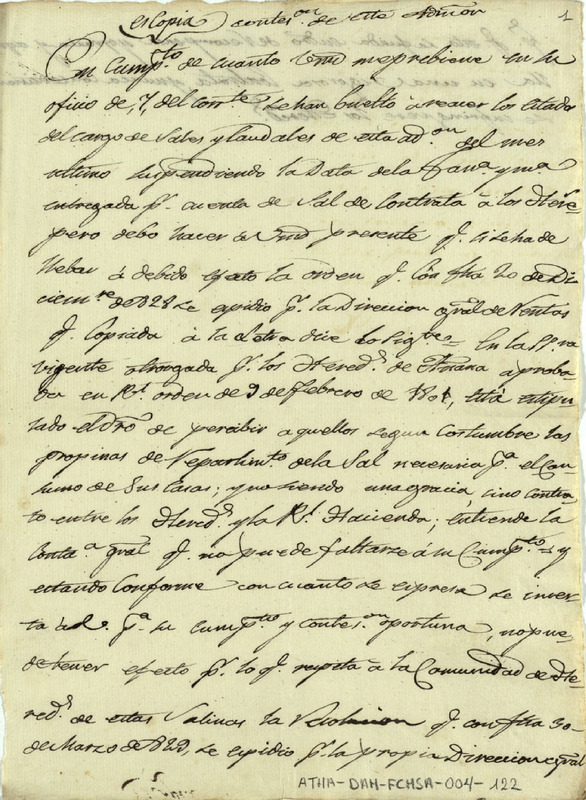 es Copia contes.on de este Admon
1
En Cump.to de cuanto Vmd me prebiene en su
oficio de, 7, del corr.te se han buelto à reacer los estados
del cargo de Sales y laudales de esta ad.on del mes
ultimo suspendiendo la Data de la
entregada p.r cuenta de Sal de Contrata à los Hered.s
pero debo hacer à Vmd presente q.e si se ha de
llebar à debido efecto la orden q.e con fha 20 de Di-
ciem.re de 828 se espidio p.r la Direccion gral de Rentas
q.e Copiada à la Letra dice lo sig.te= En la
vigente otorgada p.r los Hered.s de Añana aproba-
da en R.l orden de 9 de Febrero de 1801, està estipu-
lado el Dro de percibir aquellos segun Costumbre las
propinas de Repartim.to de la Sal necesaria p.a el Con-
sumo de sus Casas; y no siendo una gracia, sino contra-
to entre los Hered.s y la R.l Hacienda; entiende la
Conta.a gral q.e no puede faltarse à su Cump.to = y
estando Conforme con cuanto se espresa se inser-
ta à V. p.a su cump.to y contes.on oportuna, no pue-
de tener efecto p.r lo q.e respeta à la Comunidad de He-
red.s de estas Salinas la Resolucion q.e con fha 30
de Marzo de 829, se espidio p.r la propia Direccion gral
ATHA-DAH-FCHSA-004-122